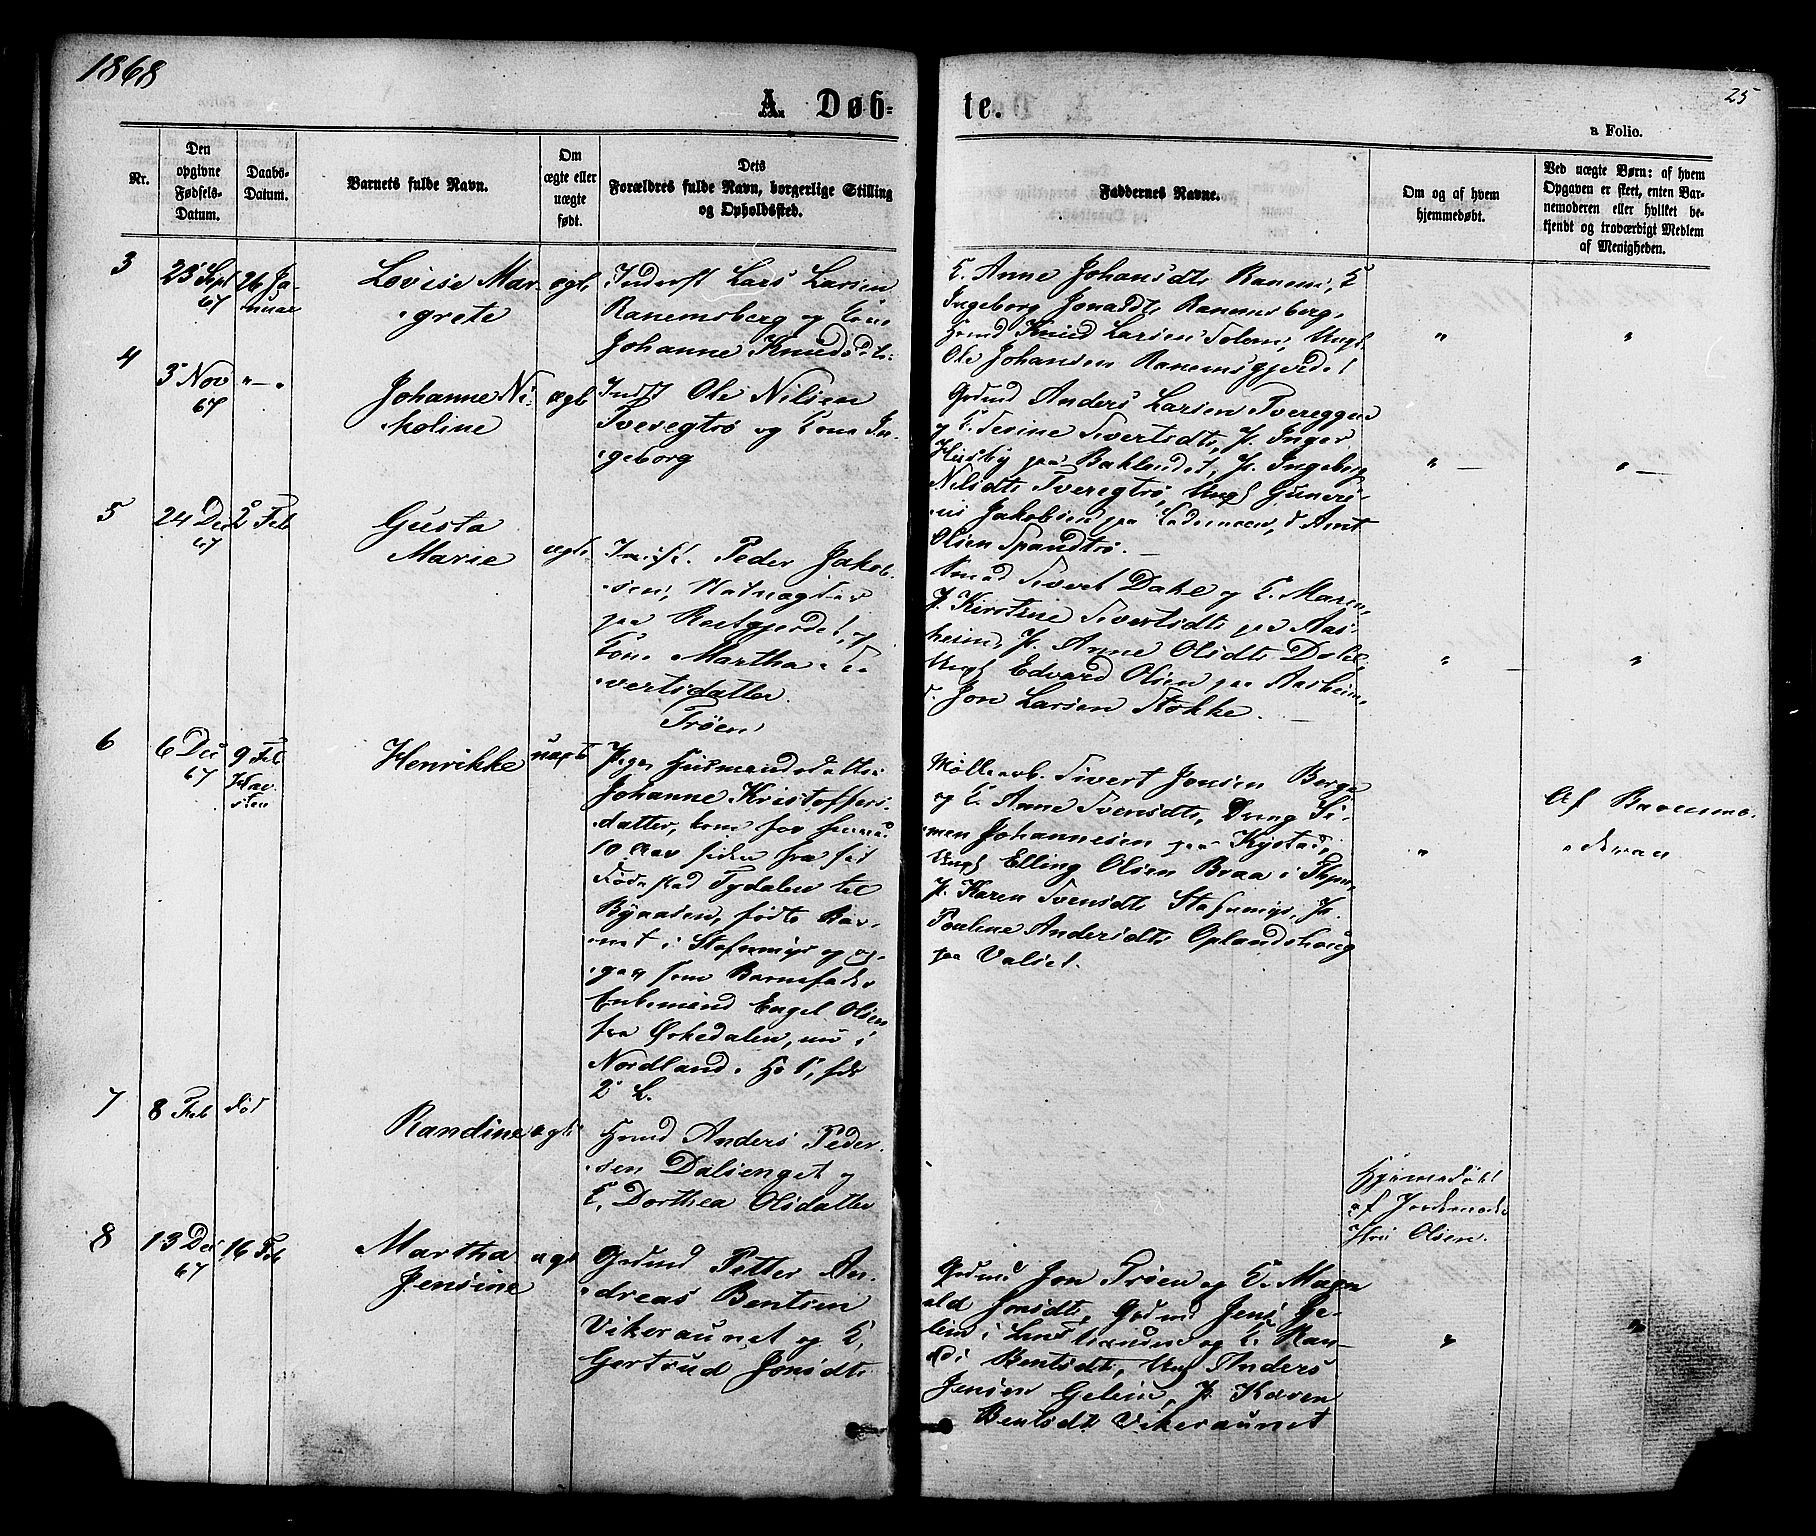 1868
25
A. Døb-
te.
B Folio.
Nr.
Den
opgivne
Fødsels-
Datum.
Daabs-
Datum.
Barnets fulde Navn.
Om
ægte eller
uægte
født.
Dets
Forældres fulde Navn, borgerlige Stilling
og Opholdssted.
Faddernes Navne.
Om og af hvem
hjemmedøbt.
Ved uægte Børn: af hvem
Opgaven er skeet, enten Bar-
nemoderen eller hvilket be-
kjendt og troværdigt Medlem
af Menigheden.
3
25 Sept
67
26 Ja-
nuar
Lovise Mar-
grete
ægte
Inderst Lars Larsen
Ranemsberg og Kone
Johanne Knudsdt.
K. Anne Johansdt Ranem, K
Ingeborg Jonasdt Ranemsberg,
Knud Larsen Solem, Ungk.
Ole Johansen Ranemsgjerdet
"
"
4
3 Nov
67
" — "
Johanne Ni-
koline
ægte
Indst Ole Nilsen
Tveregtrø og Kone In-
geborg
Gbmd Anders Larsen Tvereggen
og K. Sivertsdt, P. Inger
Husby paa Baklandet, P. Ingeborg
Nilsdt Tveregtrø, Ungk
Jakobsen paa
Olsen
" —
" —
5
24 Dec
67
2 Feb
Gusta
Marie
ægte
Inst. Peder Jakob-
sen, Natvægter
paa
Kone Martha Si-
vertsdatter.
Trøen
Sivert Dahl og K. Maren,
P. Kirstine Sivertsdt paa Aas-
heim, P. Anne Olsdt Dahl,
Ungk Edvard Olsen paa Aasheim,
Jon Larsen Stokke.
" —
"
6
6 Dec
67
9 Feb
Henrikke
uægte
Pige, Husmandsdatter
Johanne Kristoffers-
datter, kom for
10 Aar siden fra sit
Fødested Tydalen til
Byaasen, fødte Bar-
net i og op-
gav som Barnefader
Enkemand Engel Olsen
fra Ørkedalen, nu i
Nordland.
2 L.
Møllearb. Sivert Jonsen Berge
og K. Anne Svensdt, Dreng Si-
men Johannesen paa Kystad,
Ungk Elling Olsen Braa i
P. Karen Svensdt P.
Pauline Andersdt Oplandshaug
paa Valset.
"
Af Barnemo-
deren
7
8 Feb
død
Randine
ægte
Hmd Anders Peder-
sen Dalsenget og
K. Dorthea Olsdatter
Hjemmedøbt
af Jordemoder
Olsen.
8
13 Dec
67
16 Feb
Martha
Jensine
ægte
Gbmd Petter An-
dreas Bentsen
Vikeraunet og K.
Gertrud Jonsdt
Gbmd Jon Trøen og K. Magn-
ild Jonsdt, Gbmd Jens Ge-
lein i og K. Ran-
di Bentsdt, Ungk Anders
Jensen Gelein, P. Karen
Bentsdt Vikeraunet
"
"